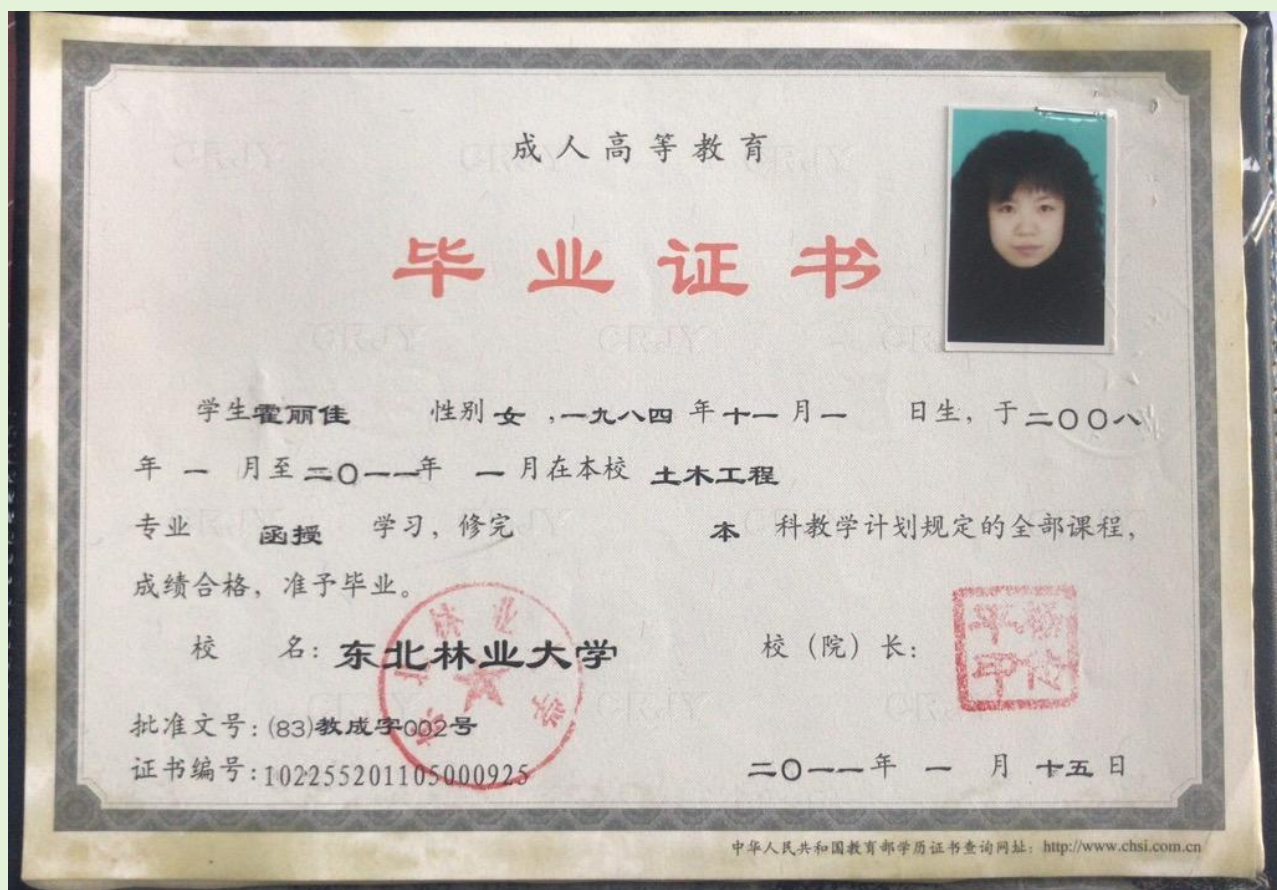 成人高等教育
毕业证书
学生霍丽佳 性别女,一九八四年十一月一 日生, 于二〇〇八
年 一 月至二〇一一年 一 月在本校 土木工程
专业 函授 学习, 修完 本 科教学计划规定的全部课程,
成绩合格, 准予毕业。
校 名: 东北林业大学 校 (院) 长:
批准文号: (83)教成字002号
证书编号: 102255201105000925 二〇一一年 一 月 十五 日
中华人民共和国教育部学历证书查询网址: http://www.chsi.com.cn